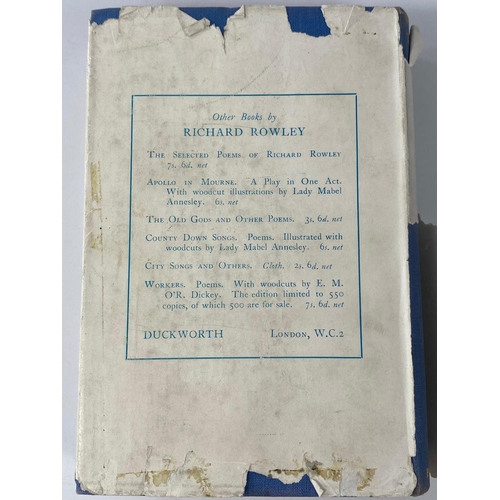 Other Books by
RICHARD ROWLEY
THE SELECTED POEMS OF RICHARD ROWLEY
7s. 6d. net
APOLLO IN MOURNE. A Play in One Act.
With woodcut illustrations by Lady Mabel
Annesley. 6s. net
THE OLD GODS AND OTHER POEMS. 3s. 6d. net
COUNTY DOWN SONGS. Poems. Illustrated with
woodcuts by Lady Mabel Annesley. 6s. net
CITY SONGS AND OTHERS. Cloth. 2s. 6d. net
WORKERS. Poems. With woodcuts by E. M.
O'R. Dickey. The edition limited to 550
copies, of which 500 are for sale. 7s. 6d. net
DUCKWORTH LONDON, W.C.2